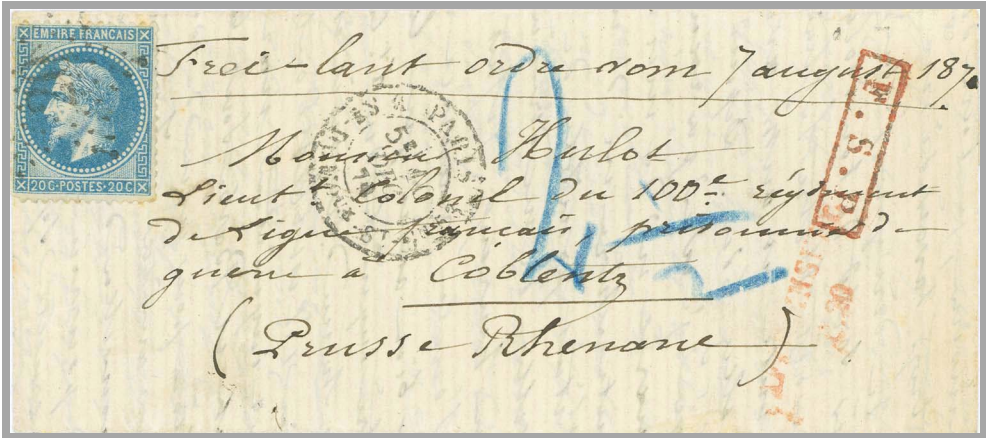 EMPIRE FRANCAIS
20C·POSTES·20C
Frei-laut ordre vom 7 august 187
Monsieur Hulot
Lieut Colonel du 100e régiment
de Ligne français, prisonnier de
guerre à Coblentz
(Prusse Rhenane)
PARIS